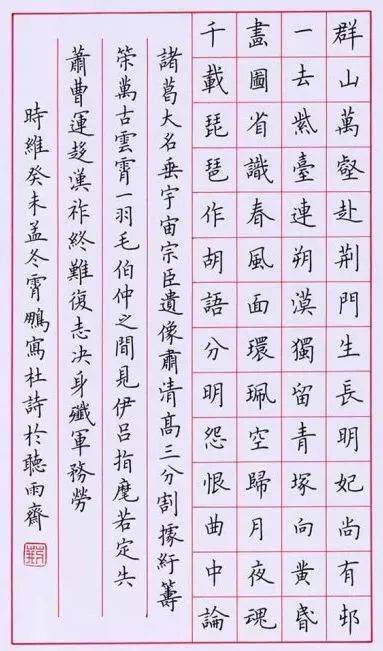 群山萬壑赴荆門生長明妃尚有邨
一去紫臺連朔漠獨留青塚向黄昏
畫圖省識春風面環珮空歸月夜魂
千載琵琶作胡語分明怨恨曲中論
諸葛大名垂宇宙宗臣遺像肅清髙三分割據紆籌
策萬古雲霄一羽毛伯仲之間見伊吕指麾若定失
蕭曹運趍漢祚終難復志决身殲軍務勞
時維癸未孟冬霄鵬寫杜詩於聽雨齋